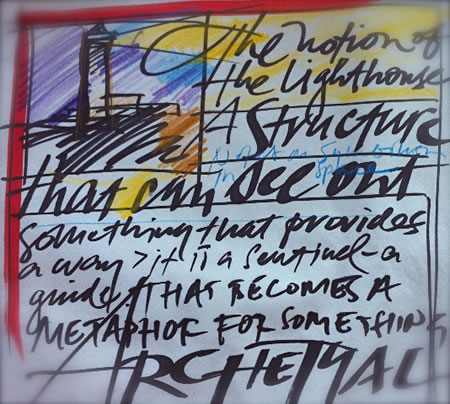 The notion of
the Lighthouse
A Structure
that can see out
something that provides
a way > it is a sentinel - a
guide, THAT BECOMES A
METAPHOR FOR SOMETHING
ARCHETYPAL